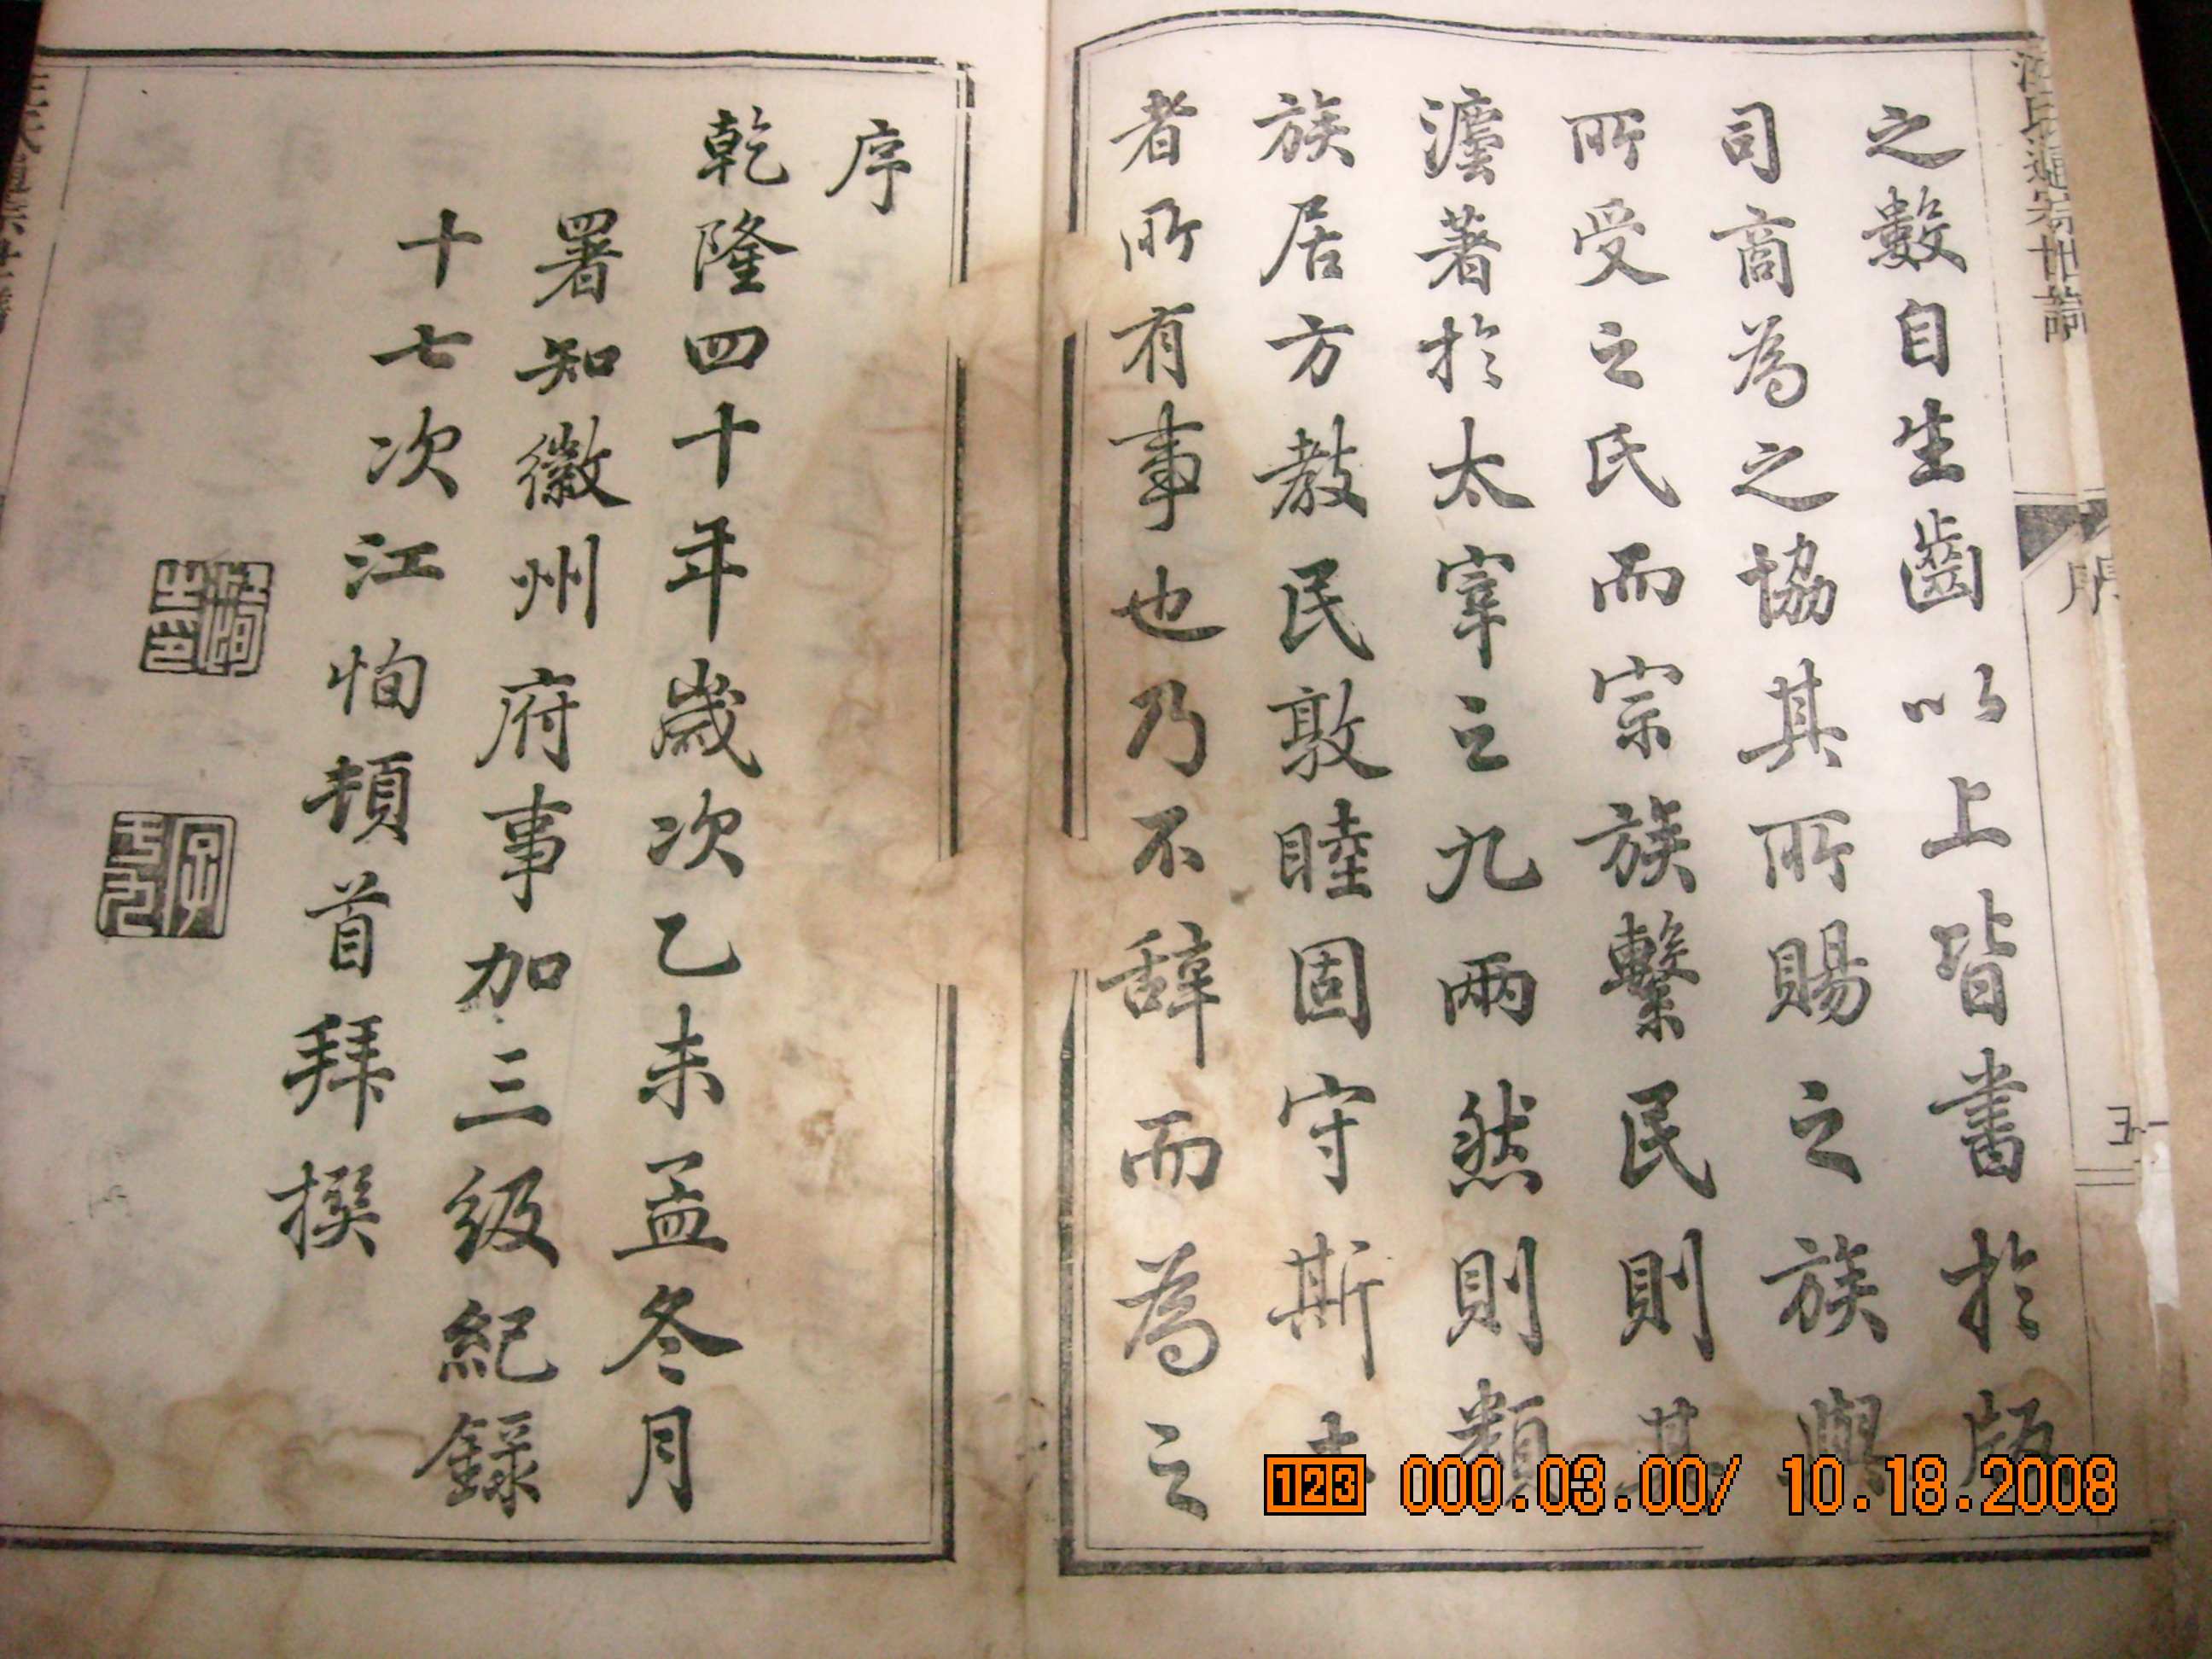 汪氏通宗世譜
序
五
之數自生齒以上皆書於版
司商為之協其所賜之族與
所受之氏而宗族繫民則其
灋著於太宰之九兩然則類
族居方教民敦睦固守斯土
者所有事也乃不辭而為之
序
乾隆四十年歲次乙未孟冬月
署知徽州府事加三級紀錄
十七次江恂頓首拜撰
江恂之印
字于九
123 000.03.00/ 10.18.2008